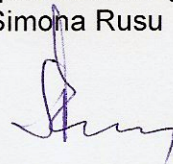 Simona Rusu